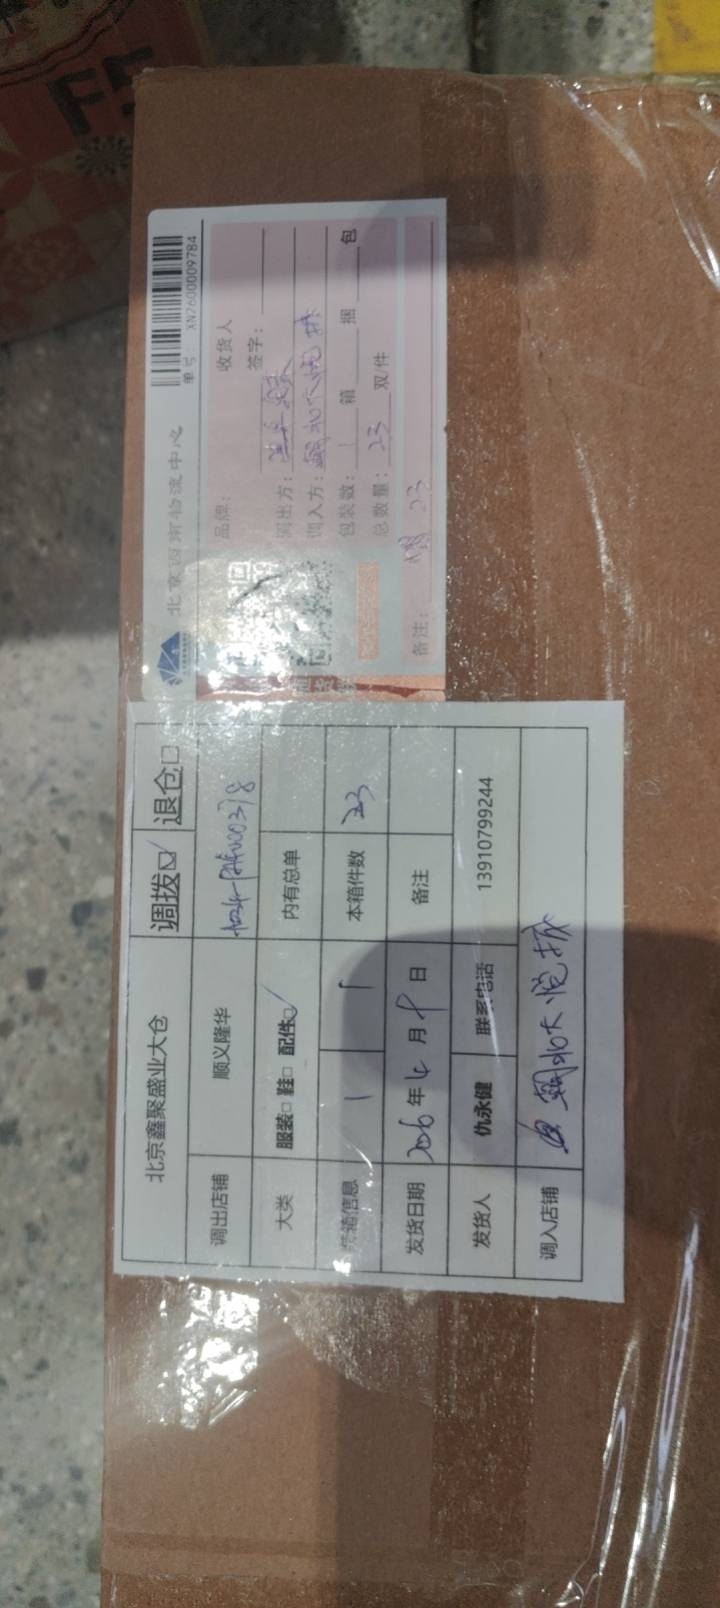 F5
北京西南物流中心
单号: XN2600009784
品牌: 收货人
签字:
调出方:
调入方: 朝北大悦城
包装数: 1 箱 捆 包
总数量: 23 双/件
备注: 23
北京鑫聚盛业大仓 调拨☑ 退仓□
调出店铺 顺义隆华
大类 服装□ 鞋□ 配件☑ 内有总单
装箱信息 1 1 本箱件数 23
发货日期 2026年4月8日 备注
发货人 仇永健 联系电话 13910799244
调入店铺 朝北大悦城